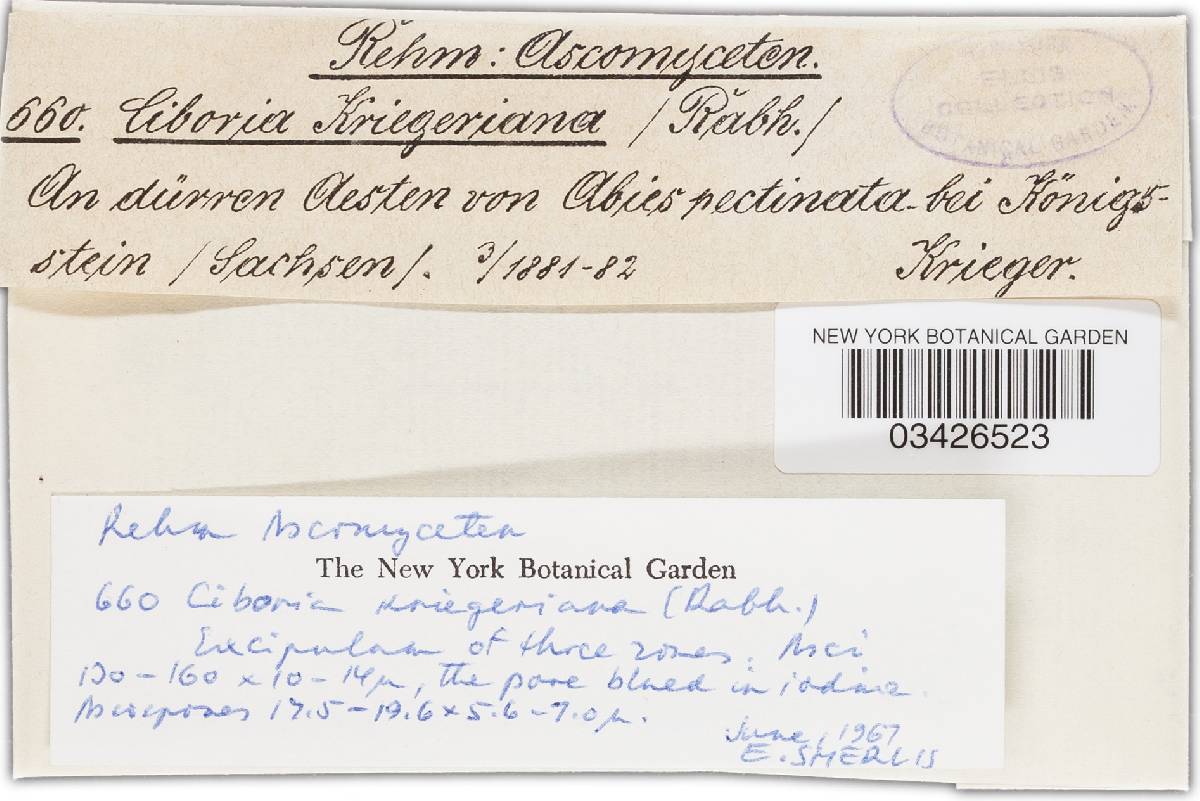 Rehm: Ascomyceten.
660. Ciboria Kriegeriana /Rabh./
An dürren Aesten von Abies pectinata bei Königs-
stein /Sachsen/. 3/1881-82 Krieger.
COLLECTION
BOTANICAL GARDEN
NEW YORK BOTANICAL GARDEN
03426523
Rehm Ascomyceten
The New York Botanical Garden
660 Ciboria kriegeriana (Rabh.)
Excipulum of three zones. Asci
130-160 x 10-14µ, the pore blued in iodine.
Ascospores 17.5-19.6 x 5.6-7.0µ.
June, 1967
E. SMERLIS